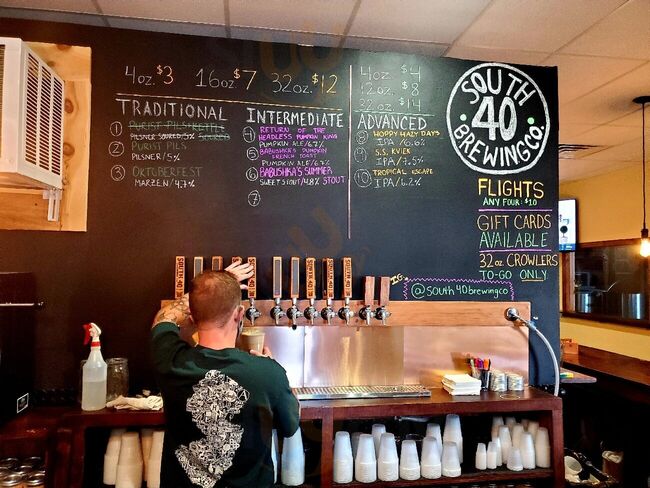 4oz. $3 16oz $7 32oz. $12
TRADITIONAL
① PURIST PILS KETTLE SOURED
PILSNER SOURED/5%
② PURIST PILS
PILSNER/5%
③ OKTOBERFEST
MARZEN/4.7%
INTERMEDIATE
④ RETURN OF THE
HEADLESS PUMPKIN KING
PUMPKIN ALE/6.2%
⑤ BABUSHKA'S PUMPKIN
FRENCH TOAST
PUMPKIN ALE/6.7%
⑥ BABUSHKA'S SUMMER
SWEET STOUT/4.8% STOUT
⑦
4oz. $4
12oz. $8
32oz. $14
ADVANCED
HOPPY HAZY DAYS
IPA/6.6%
S.S. KVIEK
IPA/7.5%
⑩ TROPICAL ESCAPE
IPA/6.2%
SOUTH
40
BREWING CO.
FLIGHTS
ANY FOUR: $10
GIFT CARDS
AVAILABLE
32 oz. CROWLERS
TO-GO ONLY
I.G.
@south40brewingco